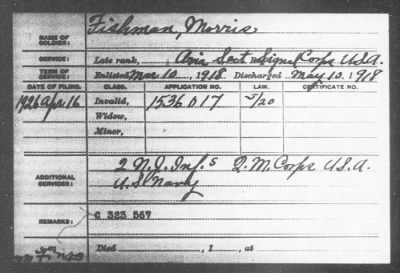 NAME OF SOLDIER: Fishman, Morris
SERVICE: Late rank, Avia Sect Signal Corps U.S.A.
TERM OF SERVICE: Enlisted Mar 10, 1918 Discharged May 10, 1918
DATE OF FILING. CLASS. APPLICATION NO. LAW. CERTIFICATE NO.
1926 Apr 16 Invalid, 1536017 5/20
Widow,
Minor,
ADDITIONAL SERVICES: 2 N.J. Inf. Q.M. Corps U.S.A.
U.S. Navy
REMARKS: C 323 567
Died , 1 , at